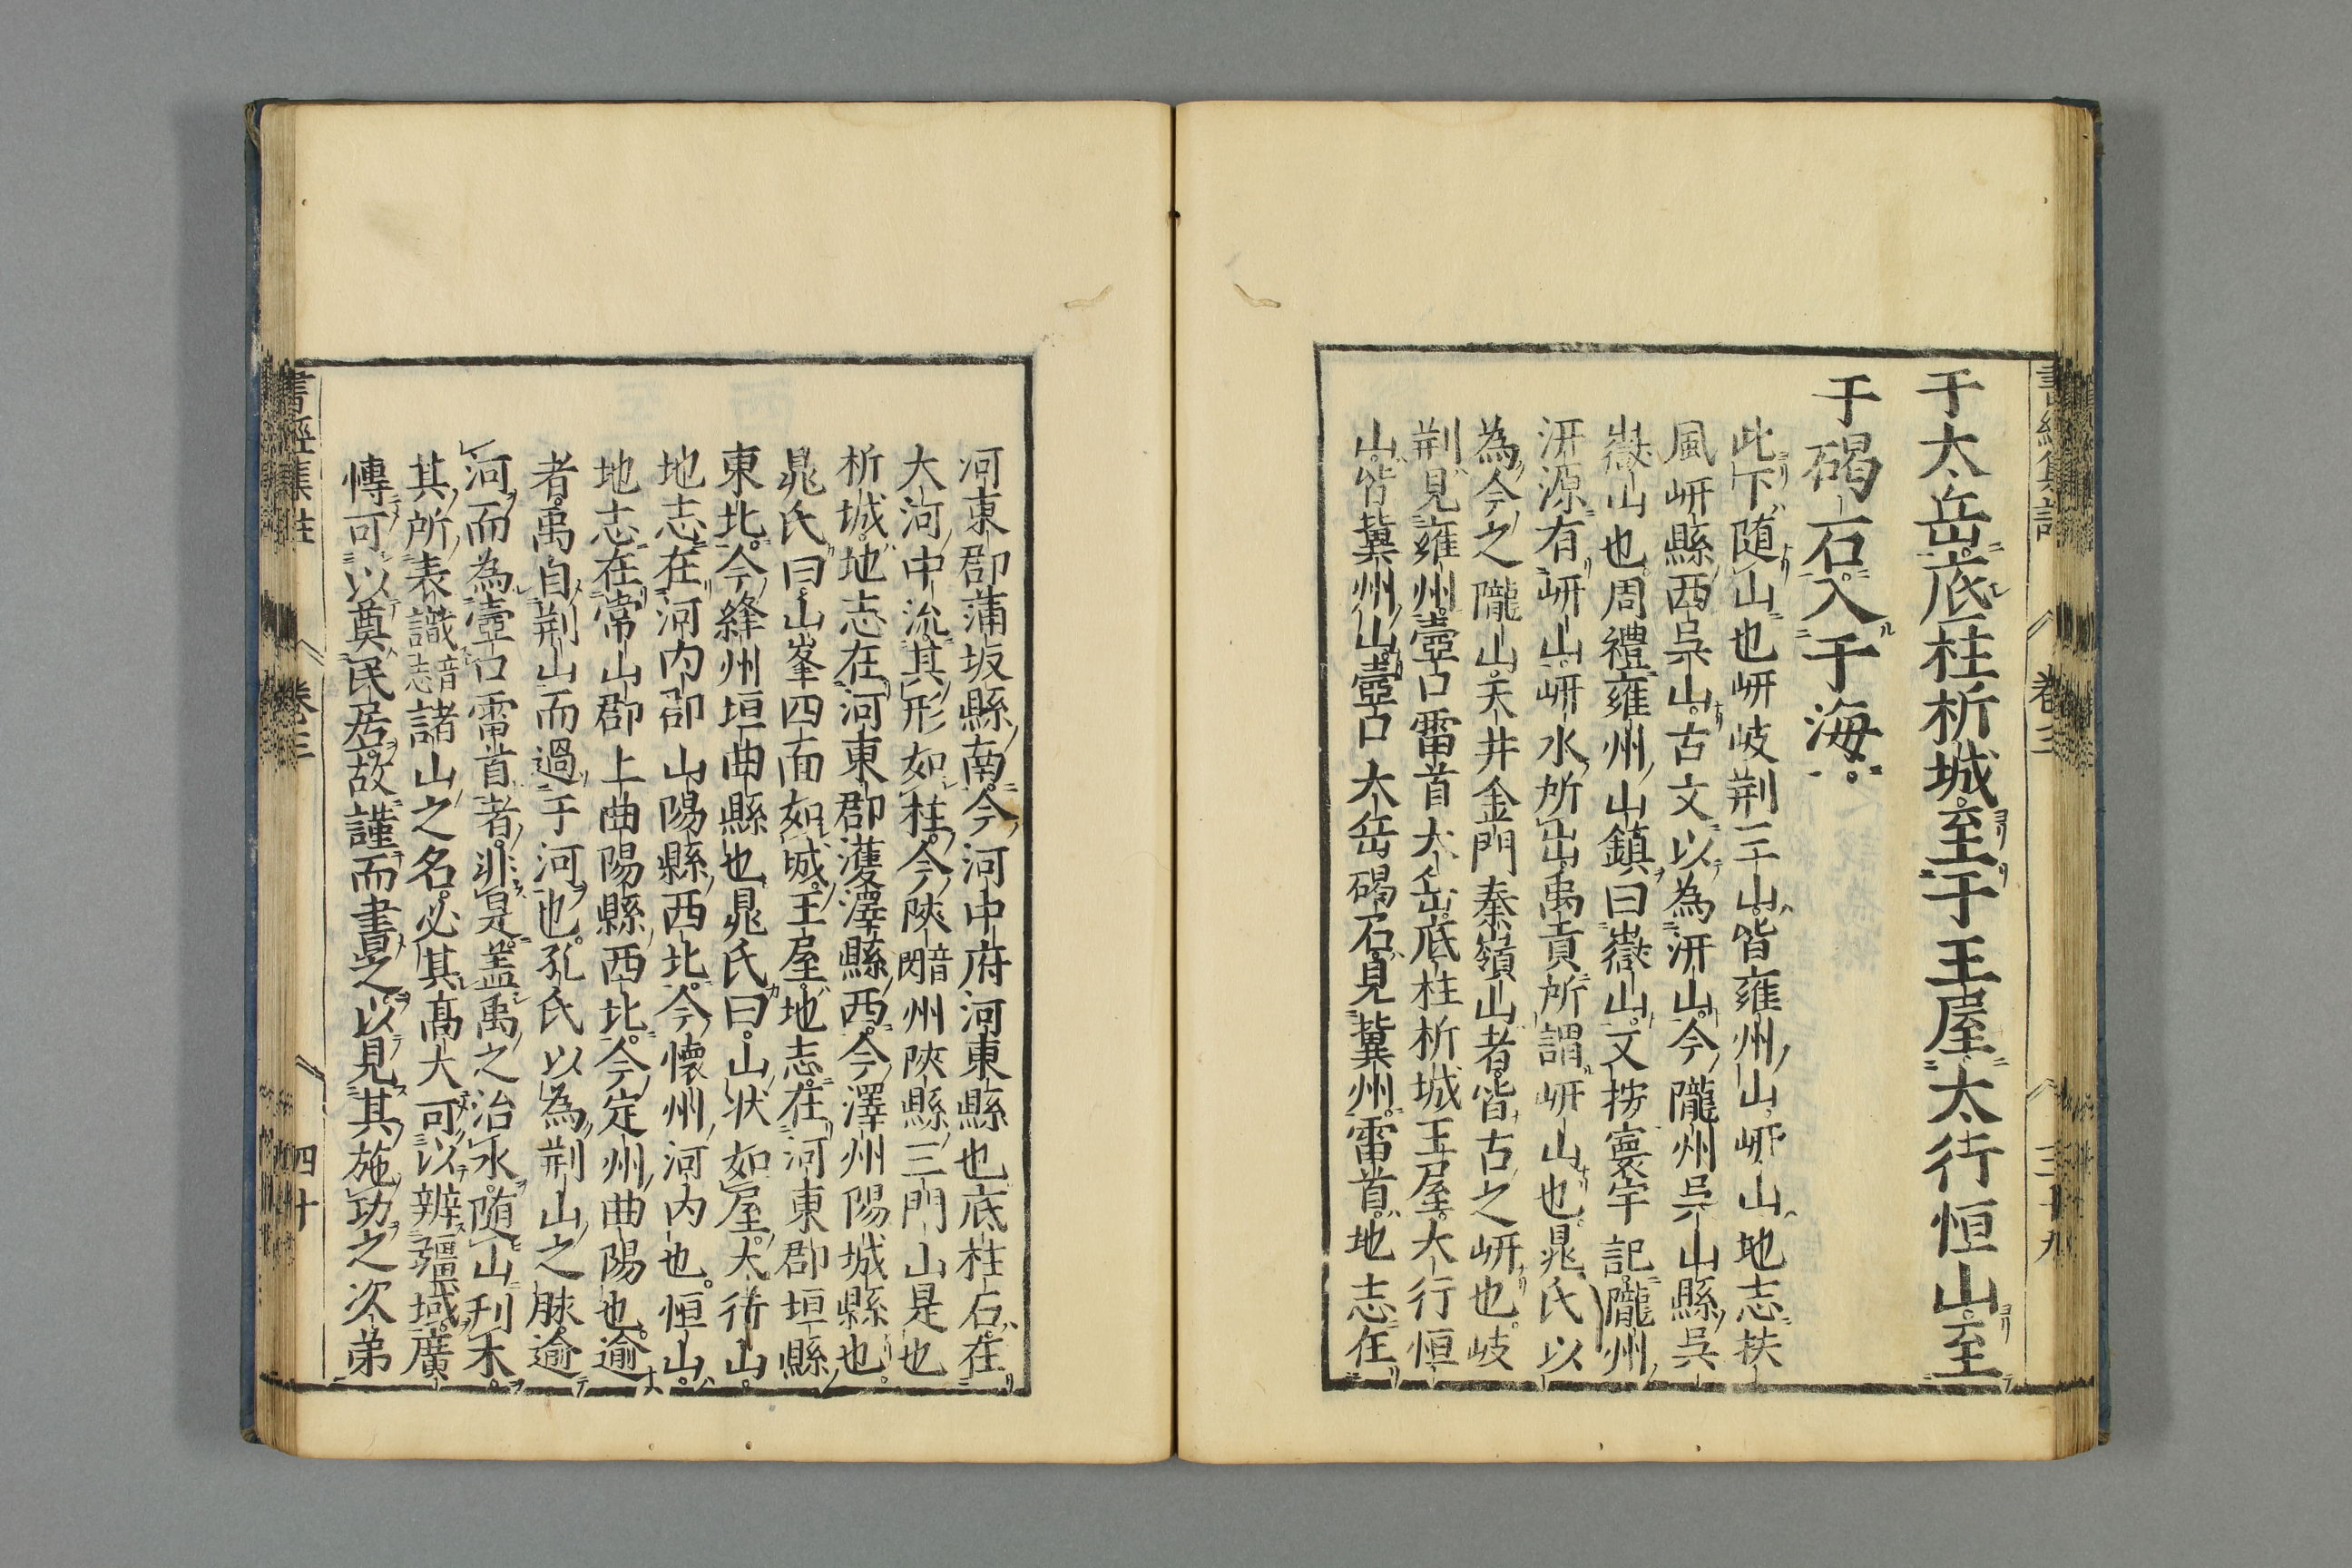 書經集註 卷三 三十九
于太岳底柱析城至于王屋太行恒山至
于碣石入于海
此下随山也岍岐荆三山皆雍州山岍山地志扶
風岍縣西吴山古文以為汧山今隴州吴山縣吴
嶽山也周禮雍州山鎮曰嶽山又按寰宇記隴州
汧源有岍山岍水所出禹貢所謂岍山也晁氏以
為今之隴山天井金門秦嶺山者皆古之岍也岐
荆見雍州壺口雷首太岳底柱析城王屋太行恒
山皆冀州山壺口太岳碣石見冀州雷首地志在
河東郡蒲坂縣南今河中府河東縣也底柱石在
大河中流其形如柱今陝音閃州陝縣三門山是也
析城地志在河東郡濩澤縣西今澤州陽城縣也
晁氏曰山峯四面如城王屋地志在河東郡垣縣
東北今絳州垣曲縣也晁氏曰山状如屋太行山
地志在河内郡山陽縣西北今懷州河内也恒山
地志在常山郡上曲陽縣西北今定州曲陽也逾
者禹自荆山而過于河也孔氏以為荆山之脉逾
河而為壺口雷首者非是盖禹之治水随山刋木
其所表識音志諸山之名必其髙大可以辨疆域廣
愽可以奠民居故謹而書之以見其施功之次第
書經集註 卷三 四十